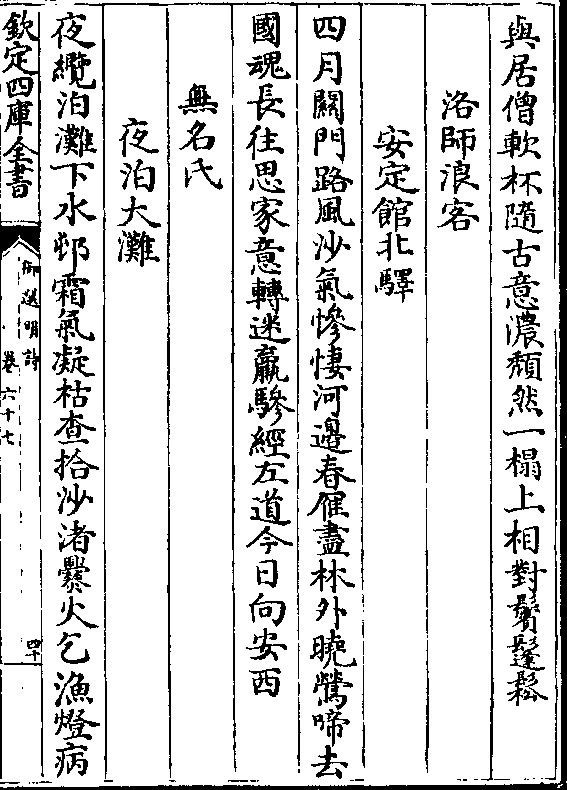 與居僧軟杯隨古意濃頹然一榻上相對鬢鬔鬆
洛師浪客
安定館北驛
四月關門路風沙氣慘悽河邊春催盡林外曉鶯啼去
國魂長往思家意轉迷羸驂經左道今日向安西
無名氏
夜泊大灘
夜纜泊灘下水邨霜氣凝枯查拾沙渚爨火乞漁燈病
欽定四庫全書
御選明詩
卷六十七
四十